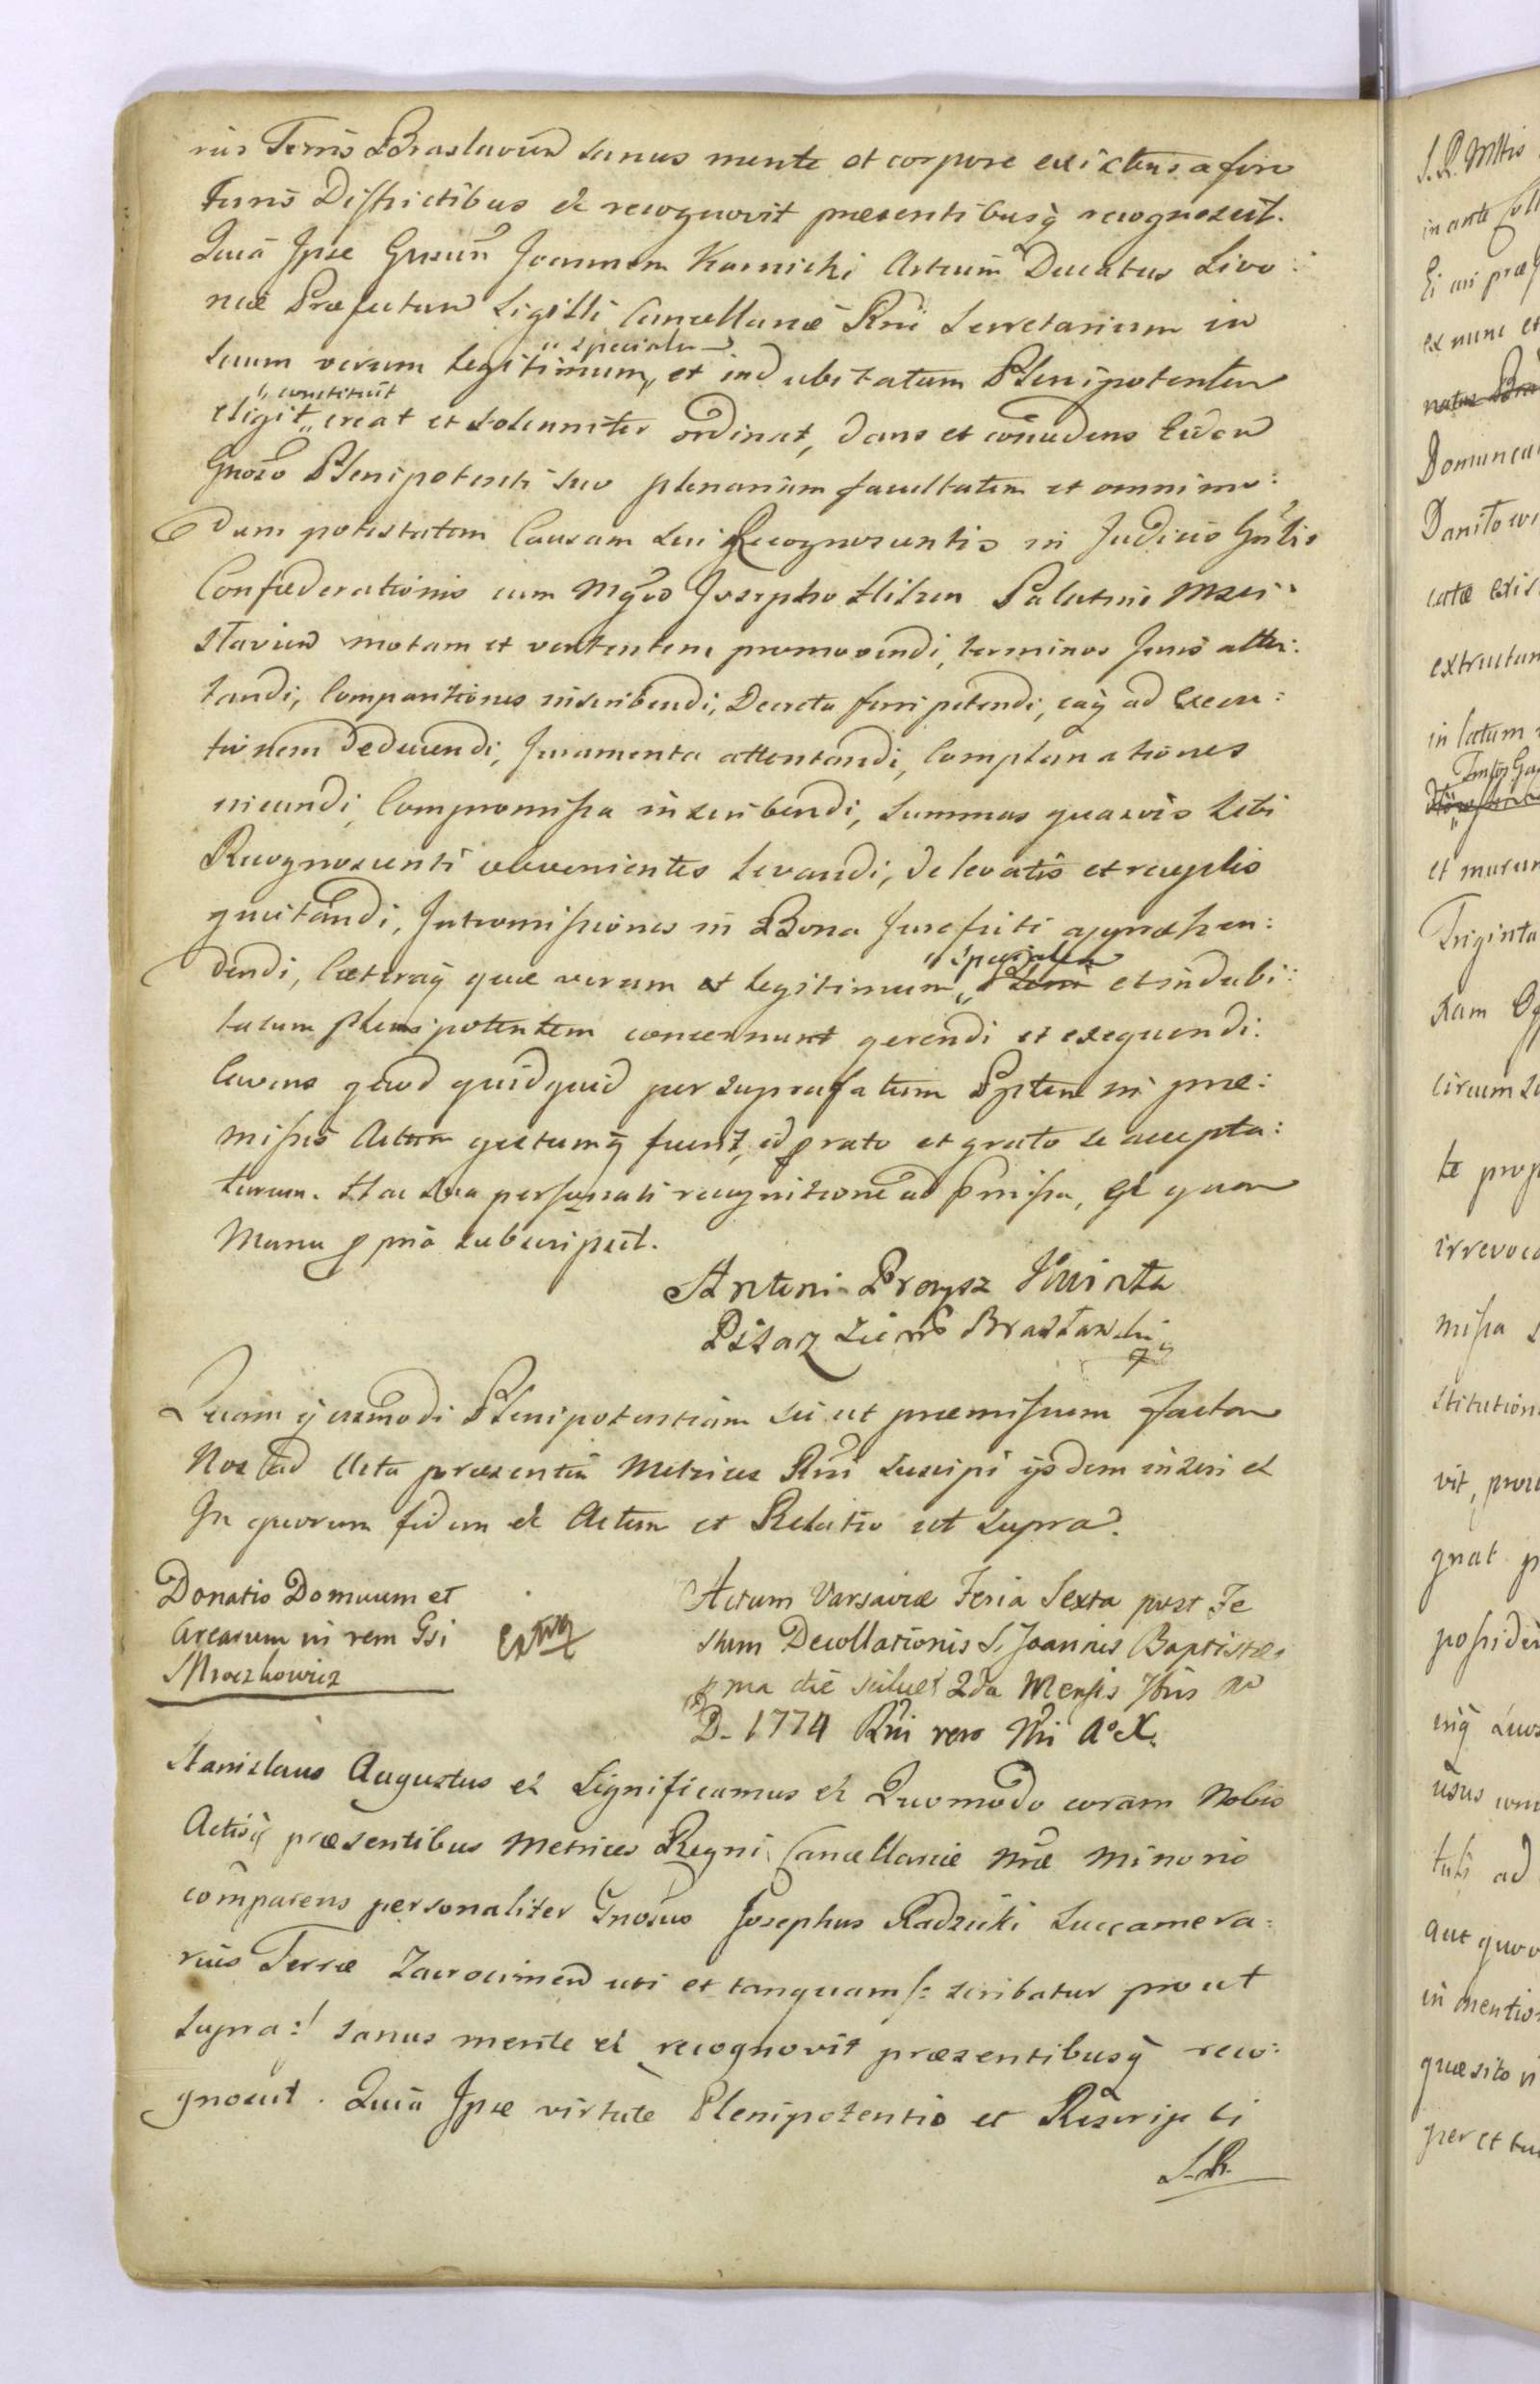 rius Terris Braslavien sanus mente et corpore existens a foro
Terris Districtibus &c recognovit praesentibusq recognoscit.
Quia Ipse Gnsum Joannem Karnicki Actuum Ducatus Livo:
niae Praefectum Sigilli Cancellariae Rni Secretarium in
" specialem
suum verum legitimum,, et indubitatum Plenipotentem
" constituit
eligit,, creat et solenniter ordinat, dans et concedens Eidem
Gnoso Plenipotenti suo plenariam facultatem et omnimo:
dam potestatem Causam sui Recognoscentis in Judiciis Gnlis
Confaederationis cum Mgco Josepho Hilzen Palatino Msci:
slavien motam et vertentem promovendi, terminos Juris atten:
tandi, Comparitiones inscribendi, Decreta ferri petendi, eaq ad Execu:
tionem deducendi, Juramenta attentandi, Complanationes
ineundi, Compromissa inscribendi, Summas quasvis Sibi
Recognoscenti obvenientes levandi, de levatis et receptis
quietandi, Intromissiones in Bona Jurefisti apprehen:
" specialem
dendi, Caeteraq quae verum et legitimum,, et indubi:
tatum plenipotentem concernunt gerendi et exequendi.
Cavens quod quidquid per suprafatum Ppttem in prae:
missis Actum gestumq fuerit, id prato et grato se accepta:
turum. Hac sua personali recognitione ad pmissa, &c quam
Manu ppria subscripsit.
Antoni Prozysz Kwinta
Pisarz Ziems Brasławski
Quam ejusmodi Plenipotentiam sic ut praemissum factam
Nos ad Acta praesentia Metrices Rni suscipi ijsdem inseri &
In quorum fidem & Actum et Relatio ut supra.
Donatio Domuum et
Arearum in rem Gsi
Mroczkowicz
Extrq
Actum Varsaviae Feria Sexta post Fe
stum Decollationis S. Joannis Baptistae
pma die scilicet 2da Mensis 7bris Ao
D. 1774 Rni vero Nri Ao X.
Stanislaus Augustus &c Significamus &c Quomodo coram Nobis
Actisq praesentibus Metrices Regni Cancellariae Nrae Minoris
comparens personaliter Gnosus Josephus Radzicki Succamera:
rius Terrae Zacrocimen uti et tanquam /: scribatur prout
supra :/ sanus mente &c recognovit praesentibusq reco:
gnoscit. Quia Ipse virtute Plenipotentis et Rescripti
S.R.
S.R. Mttis
in ante
ex nunc et
Daniłowi
catae exis
extructam
in latum
et murum
Triginta
circum
te prop
irrevoca
missa s
stitution
vit,
gnat p
possiden
usus
ad
aut quov
in mentio
quaesito
per et